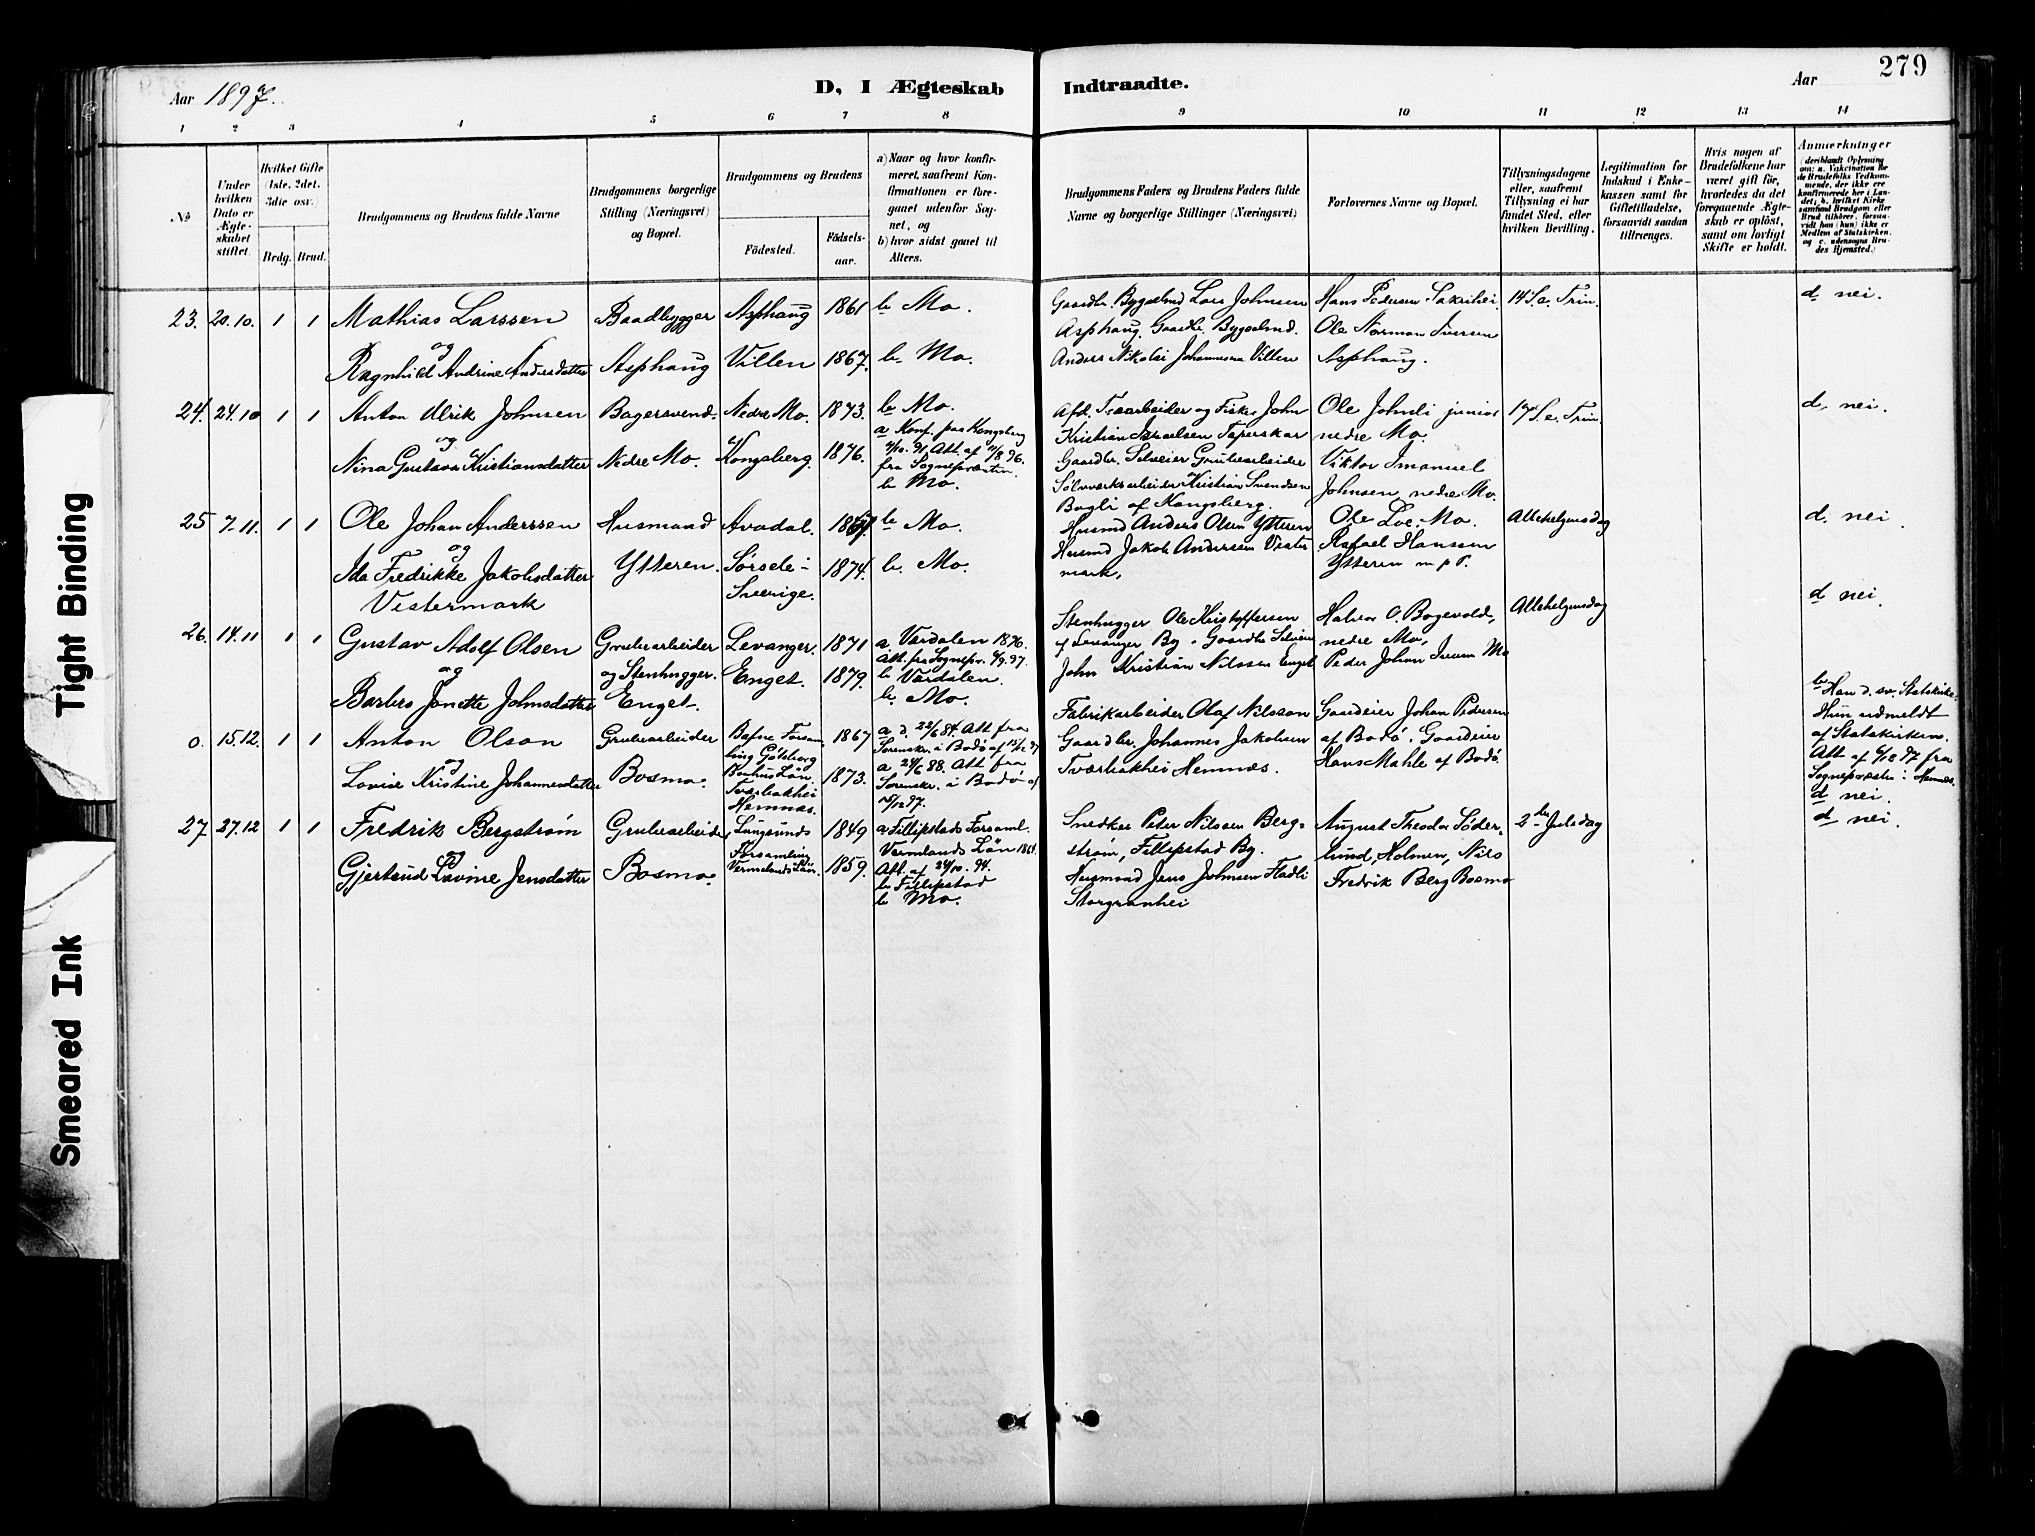 279
Aar 1897.
D, I Ægteskab Indtraadte.
Aar
1 2 3 4 5 6 7 8 9 10 11 12 13 14
№
Under hvilken Dato er Ægteskabet stiftet.
Hvilket Gifte (1ste, 2det, 3die osv.
Brdg. Brud.
Brudgommens og Brudens fulde Navne
Brudgommens borgerlige Stilling (Næringsvei) og Bopæl.
Brudgommens og Brudens
Födested.
Födselsaar.
a) Naar og hvor konfirmeret, saafremt Konfirmationen er foregaaet udenfor Sognet, og
b) hvor sidst gaaet til Alters.
Brudgommens Faders og Brudens Faders fulde Navne og borgerlige Stillinger (Næringsvei)
Forlovernes Navne og Bopæl.
Tillysningsdagene eller, saafremt Tillysning ei har fundet Sted, efter hvilken Bevilling.
Legitimation for Indskud i Enkekassen samt for Giftetilladelse, forsaavidt saadan tiltrænges.
Hvis nogen af Brudefolkene har været gift för, hvorledes da det foregaaende Ægteskab er oplöst, samt om lovligt Skifte er holdt.
Anmærkninger
(deriblandt Oplysning om: a. Vakcination for de Brudefolks Vedkommende, der ikke ere konfirmerede her i Landet; b. hvilket Kirkesamfund Brudgom eller Brud tilhörer, forsaavidt han (hun) ikke er Medlem af Statskirken, og c. udensogns Brudes Hjemsted.)
23. 20.10. 1 1 Mathias Larssen
og
Ragnhild Andrine Andersdatter
Baadbygger
Asphaug
Asphaug 1861
Villen 1867.
b. Mo.
b. Mo.
Gaardbr. Bygselmd Lars Johnsen
Asphaug. Gaardbr. Bygselmd.
Anders Nikolai Johannesen Villen
Hans Pedersen
Ole Norman Iversen
Asphaug.
14 S. e. Trin.
d. nei.
24. 24.10 1 1 Anton Ulrik Johnsen
og
Nina Gustava Kristiansdatter
Bagersvend.
Nedre Mo.
Nedre Mo. 1873.
Kongsberg. 1876.
b. Mo.
a Konf. paa Kongsberg
4/10. 91. Att. af 11/8 96.
fra Sognepræsten.
b. Mo.
Afd. og Fisker John
Kristian Israelsen
Gaardbr. Selveier Grubearbeider
Sølvverksarbeider Kristian Svendsen
af Kongsberg.
Ole Johnsli junior
nedre Mo.
Viktor Imanuel
Johnsen, nedre Mo.
17 S. e. Trin.
d. nei.
25 7-11. 1 1 Ole Johan Anderssen
og
Ida Fredrikke Jakobsdatter
Vestermark
Husmand
Ytteren.
Avadal.
Sorsele i
Sverige.
1874.
b. Mo.
b. Mo.
Husmd Anders Olsen Ytteren
Husmd Jakob Andersen Vestermark.
Ole Loe, Mo.
Rafael Hanssen
Ytteren m p P.
Allehelgensdag
d. nei
d nei
26. 14.11 1 1 Gustav Adolf Olsen
og
Barbro Janette Johnsdatter
Grubearbeider
og Stenhugger.
Enget.
Levanger. 1871
Enget. 1879.
a. Værdalen 1876.
Att. fra Sognepr. 4/9. 97.
b Værdalen.
b. Mo.
Stenhugger Ole Kristoffersen
af Levanger By. Gaardbr. Selveier
John Kristian Nilssen Enget
Halvor O. Bogevold,
nedre Mo,
Peder Johan Iversen Mo
Allehelgensdag
0. 15.12. 1 1 Anton Olson
og
Lovise Kristine Johannesdatter
Grubearbeider
Bosmo.
1867
1873.
Tværbakhei
Hemnæs.
a d. 22/6 84. Att. fra
Sorenskr. i Bodø af
a 24/6 88. Att. fra
Sorenskr. i Bodø af
Fabrikarbeider Olaf Nilsson
Gaardbr. Johannes Jakobsen
Tværbakhei Hemnæs.
Gaardeier Johan Pedersen
af Bodö. Gaardeier
Hans Mahle af Bodö.
b Han d. sv. Statskirke
Hun udmeldt
af Statskirken.
Att. af 4/12 97 fra
Sognepræsten i Hemnæs.
d nei.
27. 27.12 1 1 Fredrik Bergström
og
Gjertrud Lavine Jensdatter
Grubearbeider
Bosmo.
Lungsunds
Forsamling
Vermelands Län.
1849
1859.
a Fillipstads Forsaml.
Vermlands Län
Att. af 24/10. 94.
b Fillipstad
b Mo.
Snedker Peter Nilssen Bergström,
Fillipstad By.
Husmand Jens Johnsen Fladli
Storgranhei
August Theodor Söderlund,
Holmen, Nils
Fredrik Berg Bosmo
2den Juledag
d nei.
Tight Binding
Smeared Ink